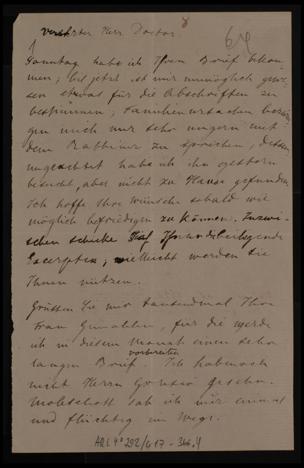 verehrter Herr Doctor.
64
Sonntag habe ich Ihren Brief bekom-
men; bis jetzt ist mir unmöglich gewe-
sen etwas für die Abschriften zu
bestimmen; Familienursachen
mich nur sehr ungern mit
dem Rabbiner zu sprechen, dessen
ungeachtet habe ich ihn gestern
besucht, aber nicht zu Hause gefunden.
Ich hoffe Ihre Wünsche sobald wie
möglich befriedigen zu können. Inzwi-
schen schicke Ihnen beiliegende
Excerpten; vielleicht werden sie
Ihnen nützen.
Grüssen Sie mir tausendmal Ihre
Frau Gemahlin, für die werde
ich in diesem Monat einen sehr
langen Brief vorbereiten. Ich habe noch
nicht Herrn gesehen.
Moleschott sah ich nur einmal
und flüchtig im Wege.
ARC 4° 292/417-366.4